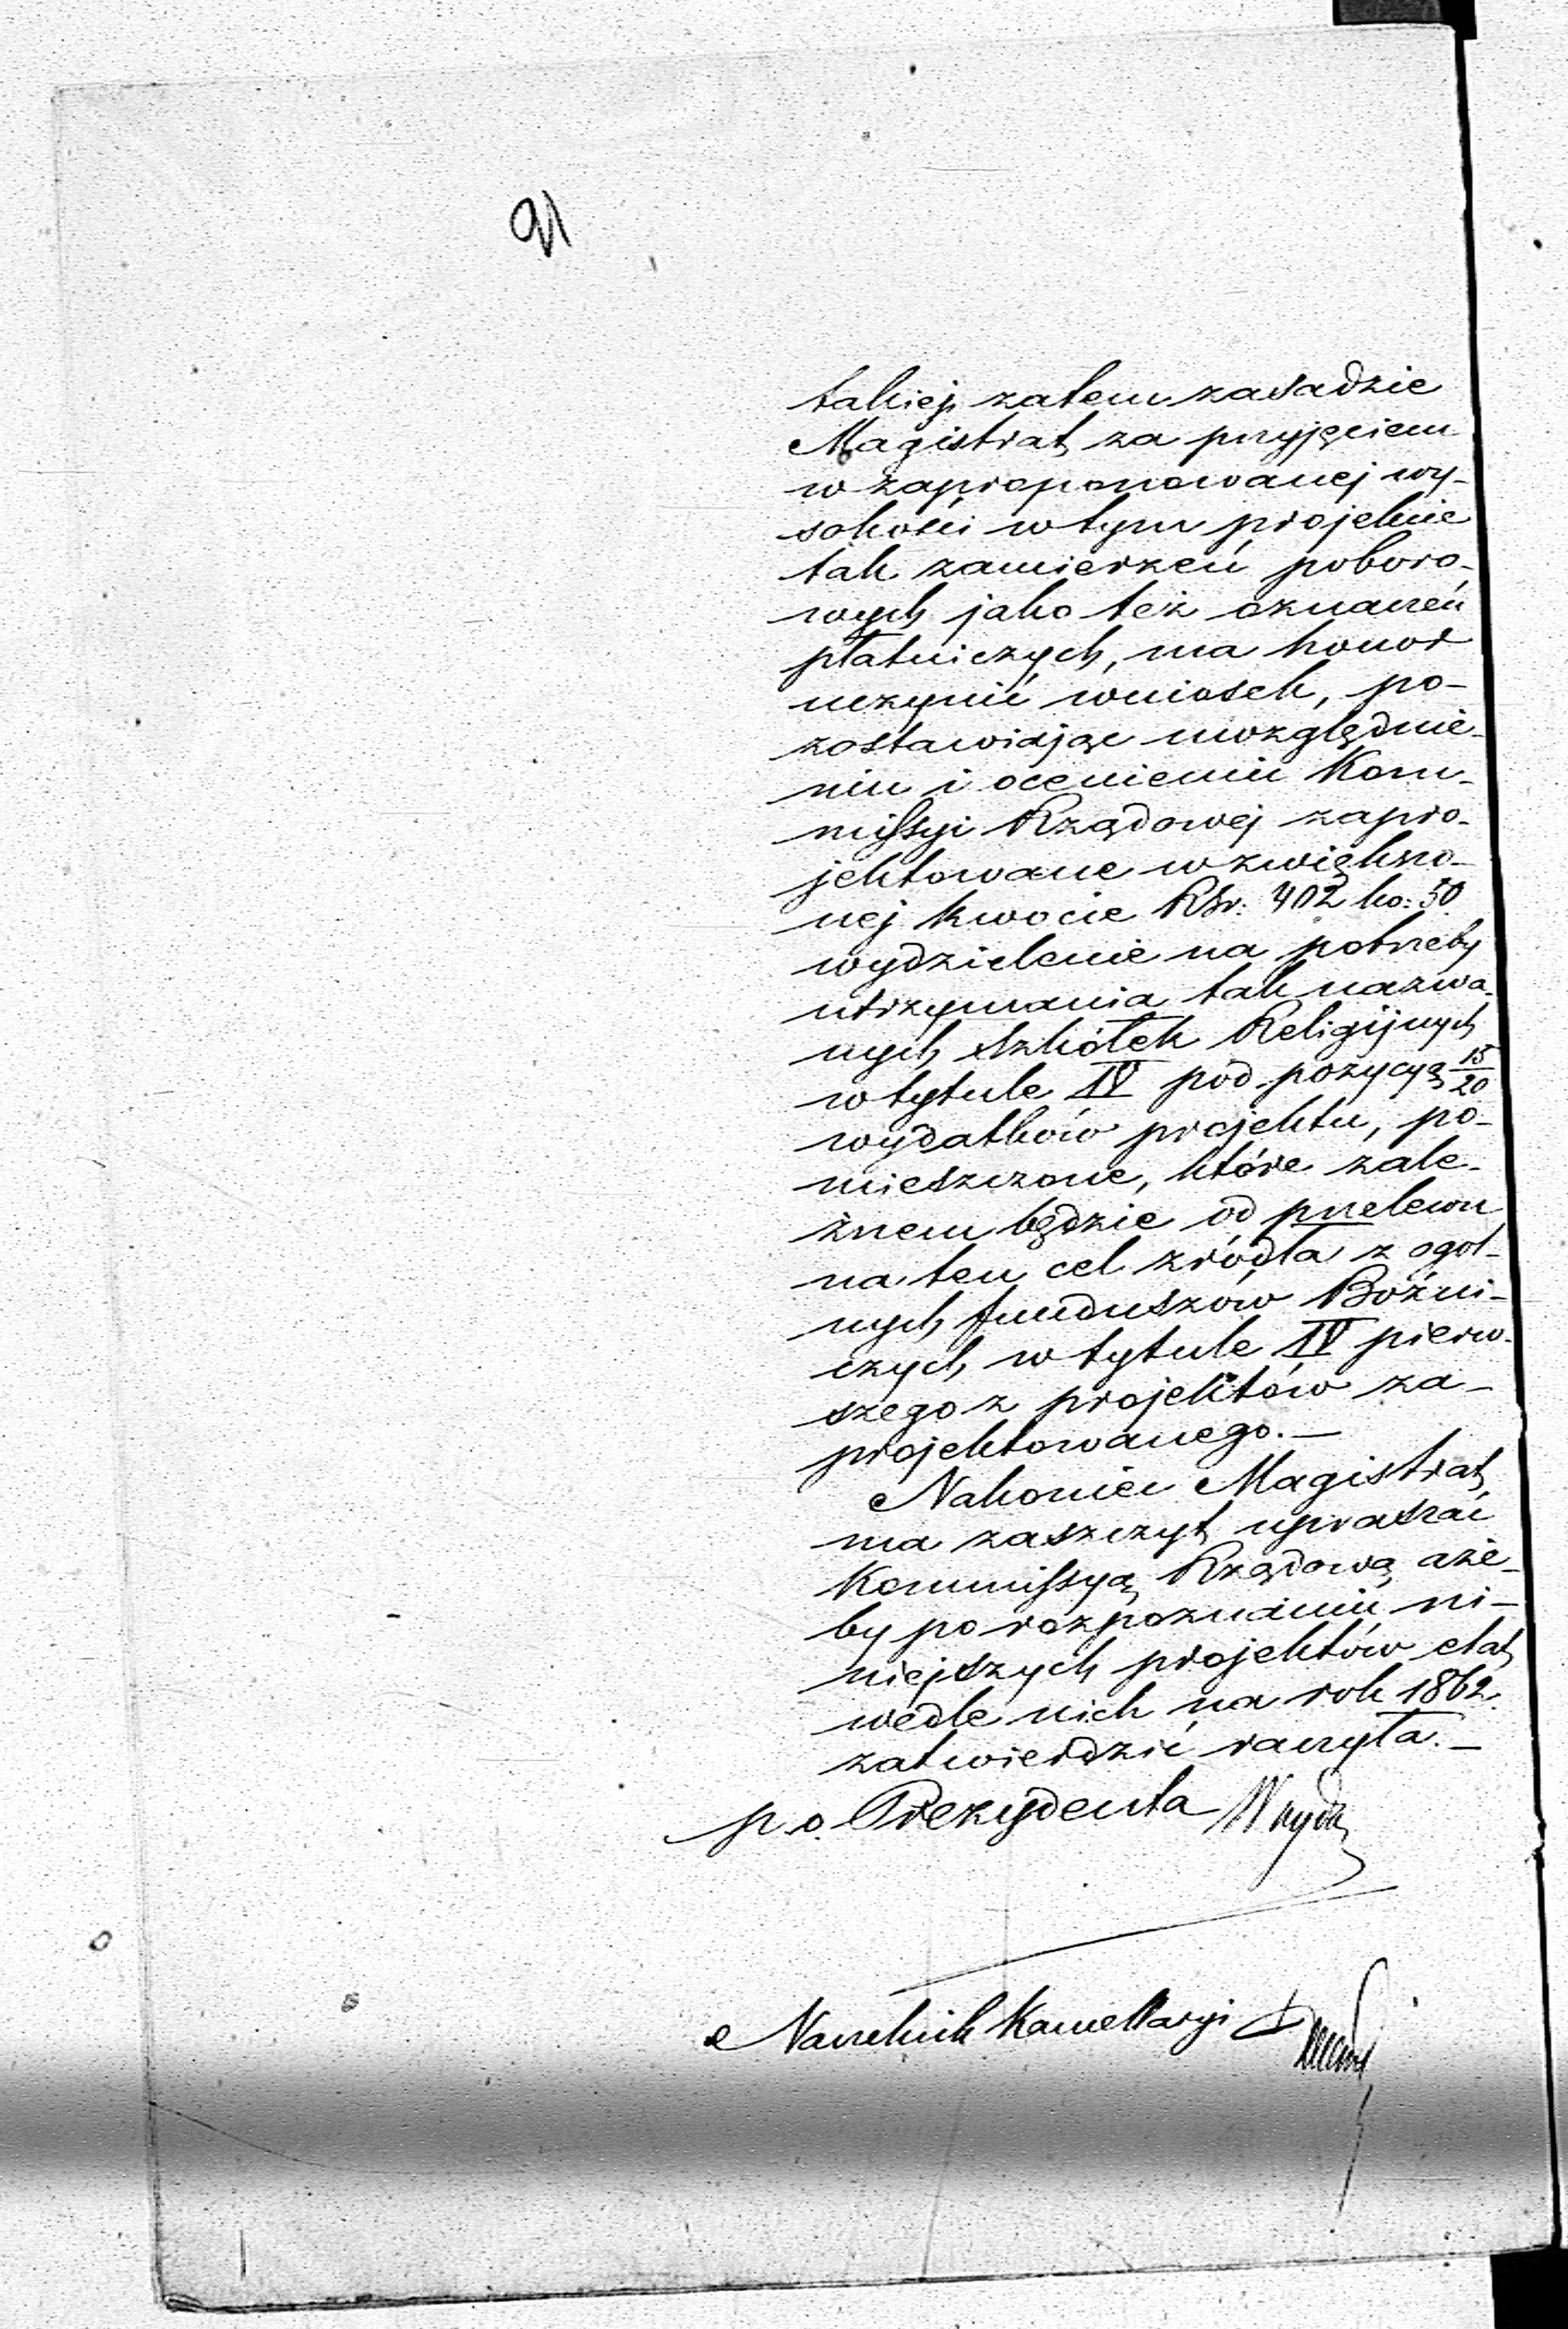 takiej zatem zasadzie
Magistrat za przyjęciem
w zaproponowanej wy-
sokości w tym projekcie
tak zamierzeń poboro-
wych jako też oznaczeń
płatniczych, ma honor
uczynić wniosek, po-
zostawiając uwzględnie-
niu i ocenieniu Kom-
missyi Rządowej zapro-
jektowane w zwiększo-
nej kwocie RSr: 402 ko: 50
wydzielenie na potrzeby
utrzymania tak nazwa-
nych Szkółek Religijnych
w tytule IV pod pozycyą 15/20
wydatków projektu, po-
mieszczone, które zale-
żnem będzie od przelewu
na ten cel źródła z ogól-
nych funduszów Bóźni-
czych w tytule IV pierw-
szego z projektów za-
projektowanego.—
Nakoniec Magistrat
ma zaszczyt upraszać
Kommissyą Rządową aże-
by po rozpoznaniu ni-
niejszych projektów etat
wedle nich na rok 1862.
zatwierdzić raczyła.—
p.o. Prezydenta
Naczelnik Kancellaryi